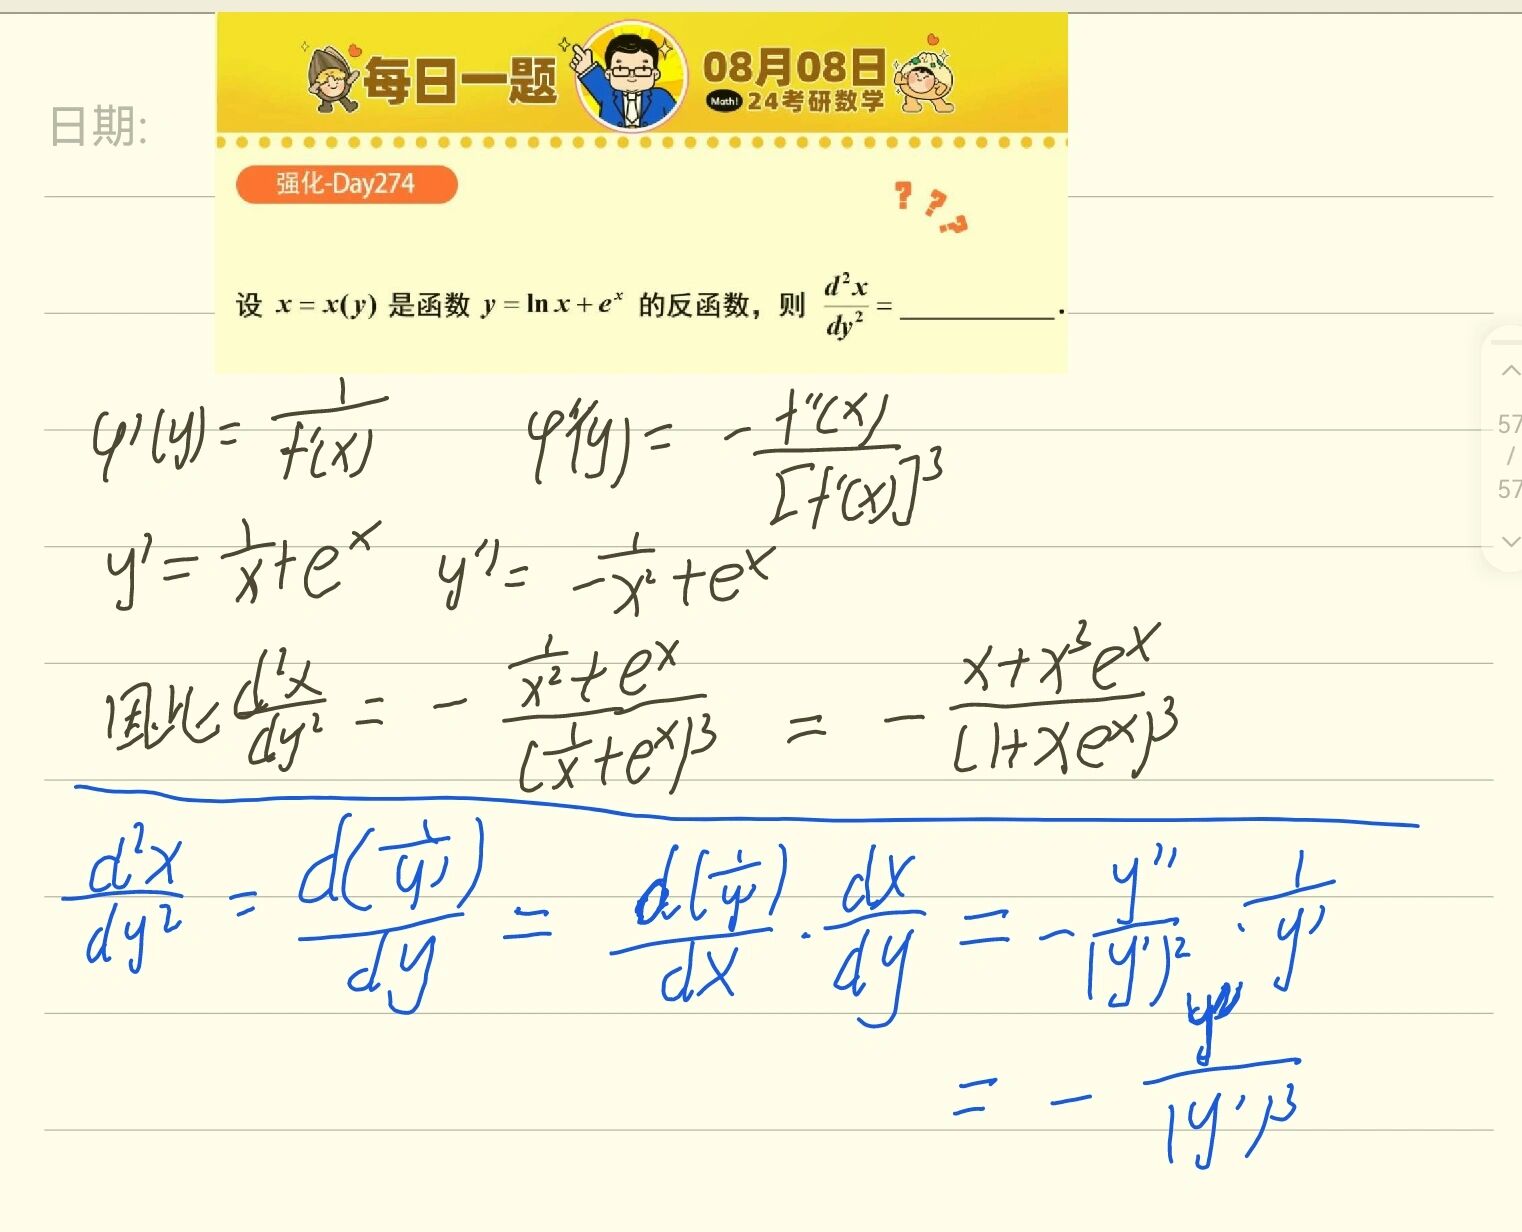 每日一题
08月08日
Math! 24考研数学
日期:
强化-Day274
? ? ?
设 x = x(y) 是函数 y = ln x + e^x 的反函数，则 d²x/dy² = ________ .
φ'(y) = 1/f'(x)    φ''(y) = - f''(x)/[f'(x)]³
y' = 1/x + e^x    y'' = -1/x² + e^x
因此 d²x/dy² = - (1/x² + e^x)/(1/x + e^x)³ = - (x + x³e^x)/(1 + xe^x)³
d²x/dy² = d(1/y')/dy = d(1/y')/dx · dx/dy = - y''/(y')² · 1/y'
= - y''/(y')³
57
/
57